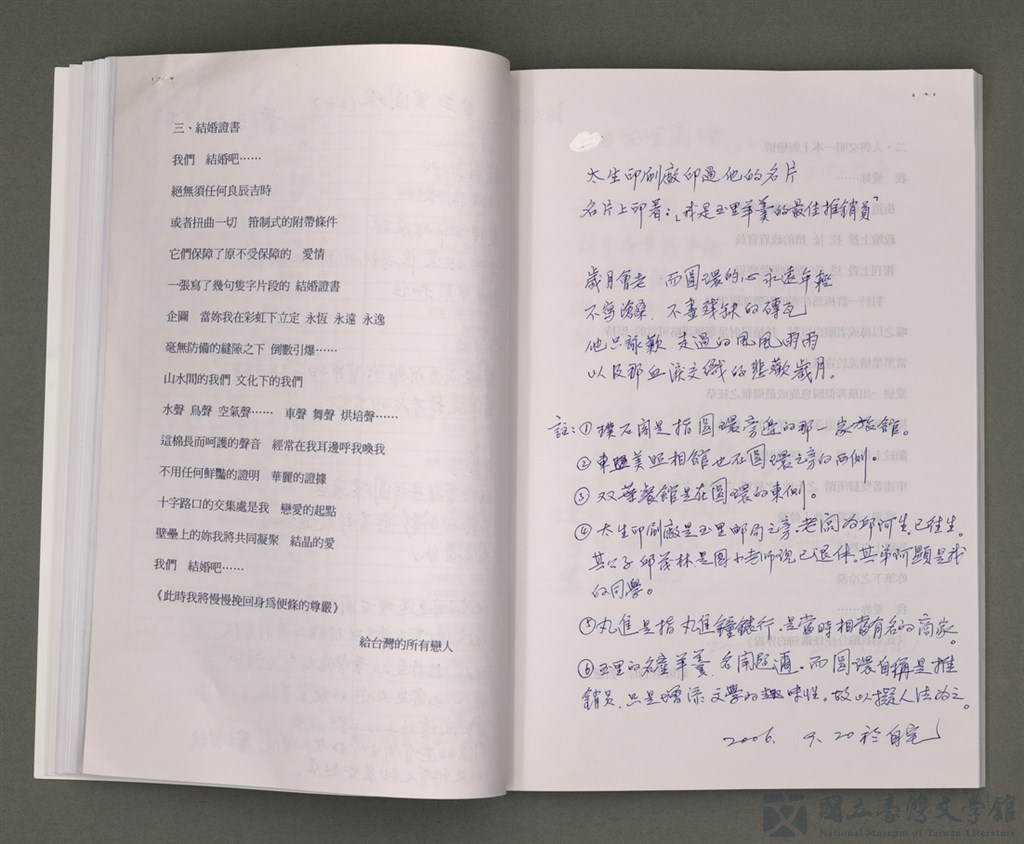 三、結婚證書
我們　結婚吧……
絕無須任何良辰吉時
或者扭曲一切　箝制式的附帶條件
它們保障了原不受保障的　愛情
一張寫了幾句隻字片段的 結婚證書
企圖　當妳我在彩虹下立定 永恆 永遠 永逸
毫無防備的縫隙之下 倒數引爆……
山水間的我們 文化下的我們
水聲 鳥聲 空氣聲……　車聲 舞聲 烘培聲……
這棉長而呵護的聲音　經常在我耳邊呼我喚我
不用任何鮮豔的證明　華麗的證據
十字路口的交集處是我　戀愛的起點
壁壘上的妳我將共同凝聚　結晶的愛
我們　結婚吧……
《此時我將慢慢挽回身為便條的尊嚴》
給台灣的所有戀人
太生印刷廠印過他的名片
名片上印著：「我是玉里羊羹的最佳推銷員」
歲月會老　而圓環的心永遠年輕
不寫滄桑．不畫殘缺的磚瓦
他只詠歎 走過的風風雨雨
以及那血淚交織的悲歡歲月。
註：①璞石閣是指圓環旁邊的那一家旅館。
②東豐美照相館也在圓環之旁的西側。
③双華餐館是在圓環的東側。
④太生印刷廠是玉里郵局之旁．老闆為邱阿生．已往生。
其公子邱茂林是國小老師現已退休．其弟阿顯是我
的同學。
⑤丸進是指丸進鐘錶行．是當時相當有名的商家。
⑥玉里的名產羊羹．名聞遐邇．而圓環自稱是推
銷員．只是增添文學的趣味性。故以擬人法為之。
2006. 9. 20 於自宅
國立臺灣文學館
National Museum of Taiwan Literature